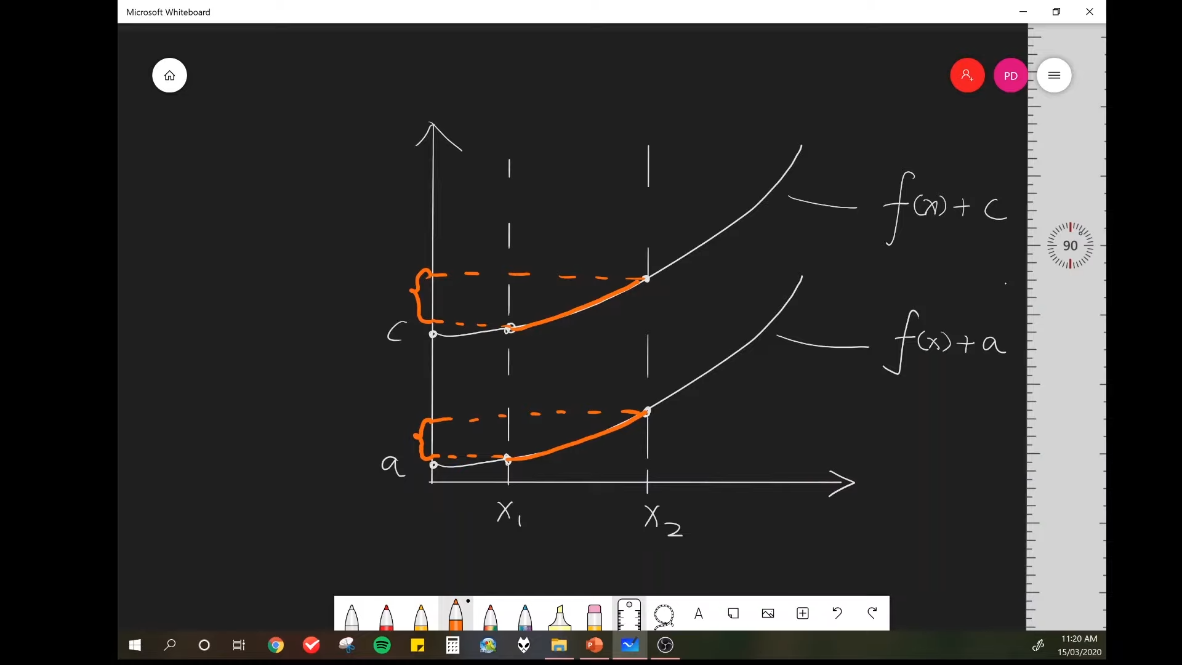 Microsoft Whiteboard
PD
f(x) + c
90
c
f(x) + a
a
x₁
x₂
A
11:20 AM
15/03/2020